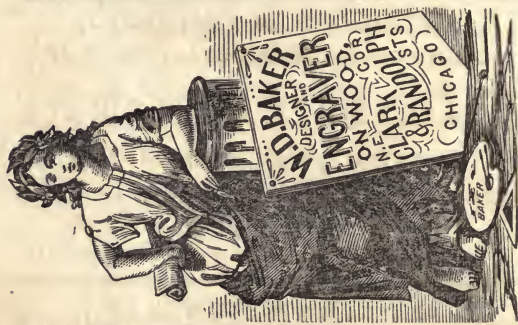 W.D. BAKER
DESIGNER AND
ENGRAVER
ON WOOD,
N.E. COR
CLARK
& RANDOLPH STS
CHICAGO
BAKER